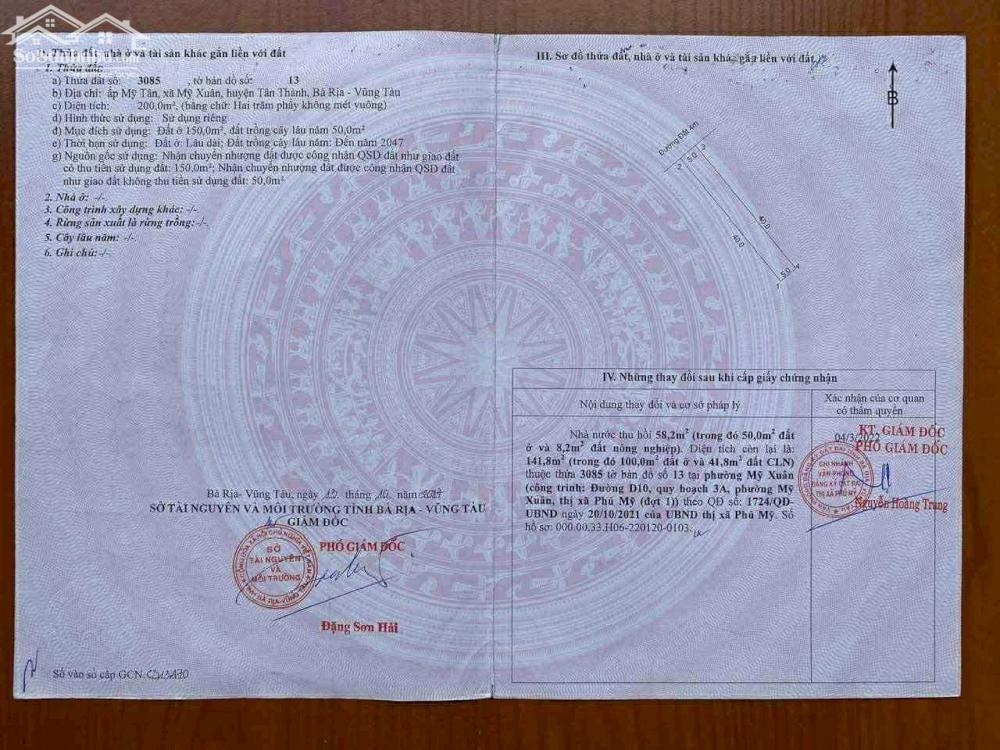 II. Thửa đất, nhà ở và tài sản khác gắn liền với đất
1. Thửa đất
a) Thửa đất số: 3085, tờ bản đồ số: 13
b) Địa chỉ: ấp Mỹ Tân, xã Mỹ Xuân, huyện Tân Thành, Bà Rịa - Vũng Tàu
c) Diện tích: 200,0m², (bằng chữ: Hai trăm phảy không mét vuông)
d) Hình thức sử dụng: Sử dụng riêng
đ) Mục đích sử dụng: Đất ở 150,0m², đất trồng cây lâu năm 50,0m²
e) Thời hạn sử dụng: Đất ở: Lâu dài; Đất trồng cây lâu năm: Đến năm 2047
g) Nguồn gốc sử dụng: Nhận chuyển nhượng đất được công nhận QSD đất như giao đất
có thu tiền sử dụng đất: 150,0m²; Nhận chuyển nhượng đất được công nhận QSD đất
như giao đất không thu tiền sử dụng đất: 50,0m²
2. Nhà ở: -/-
3. Công trình xây dựng khác: -/-
4. Rừng sản xuất là rừng trồng: -/-
5. Cây lâu năm: -/-
6. Ghi chú: -/-
Bà Rịa- Vũng Tàu, ngày 12 tháng 10 năm
SỞ TÀI NGUYÊN VÀ MÔI TRƯỜNG TỈNH BÀ RỊA - VŨNG TÀU
GIÁM ĐỐC
PHÓ GIÁM ĐỐC
SỞ
TÀI NGUYÊN
VÀ
MÔI TRƯỜNG
Đặng Sơn Hải
Số vào sổ cấp GCN:
III. Sơ đồ thửa đất, nhà ở và tài sản khác gắn liền với đất
B
Đường Đất 4m
2 5.0 3
40.0
40.0
1 5.0 4
IV. Những thay đổi sau khi cấp giấy chứng nhận
Nội dung thay đổi và cơ sở pháp lý
Xác nhận của cơ quan
có thẩm quyền
Nhà nước thu hồi 58,2m² (trong đó 50,0m² đất
ở và 8,2m² đất nông nghiệp). Diện tích còn lại là:
141,8m² (trong đó 100,0m² đất ở và 41,8m² đất CLN)
thuộc thửa 3085 tờ bản đồ số 13 tại phường Mỹ Xuân
(công trình: Đường D10, quy hoạch 3A, phường Mỹ
Xuân, thị xã Phú Mỹ (đợt 1)) theo QĐ số: 1724/QĐ-
UBND ngày 20/10/2021 của UBND thị xã Phú Mỹ. Số
hồ sơ: 000.00.33.H06-220120-0103.
04/3/2022
KT. GIÁM ĐỐC
PHÓ GIÁM ĐỐC
CHI NHÁNH
VĂN PHÒNG
ĐĂNG KÝ ĐẤT ĐAI
THỊ XÃ PHÚ MỸ
Nguyễn Hoàng Trung